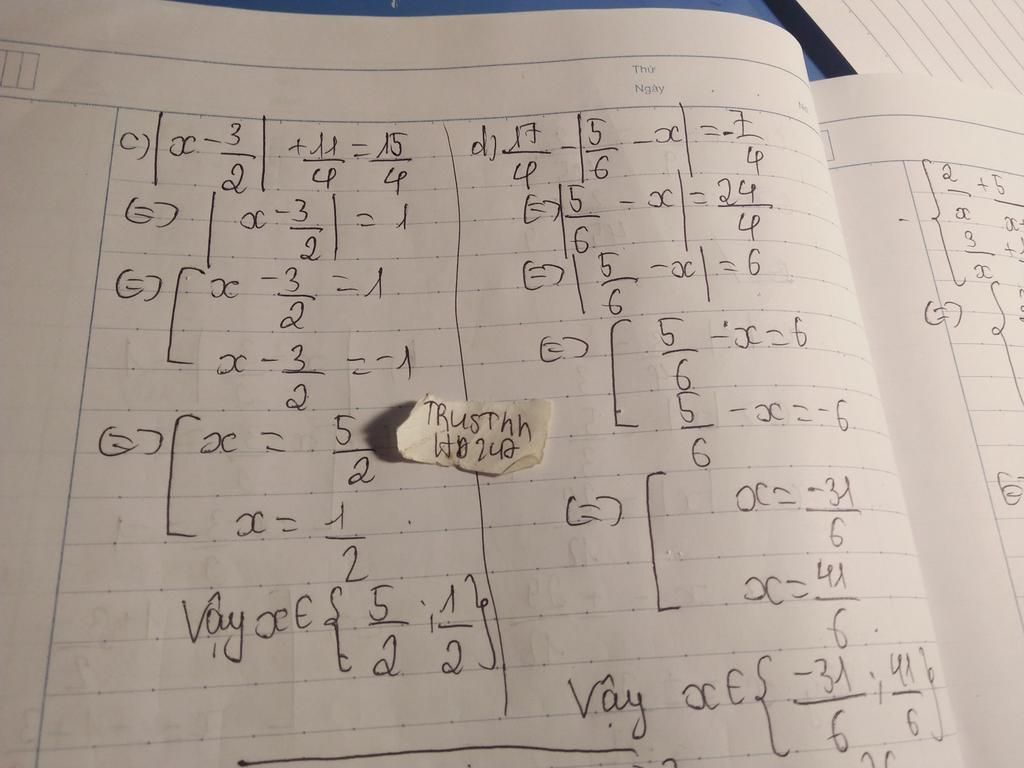 Thứ
Ngày
c) |x - 3/2| + 11/4 = 15/4
(=) |x - 3/2| = 1
(=) [ x - 3/2 = 1
x - 3/2 = -1
(=) [ x = 5/2
x = 1/2
Vậy x ∈ { 5/2 ; 1/2 }
TRUSTnn
d) 17/4 - |5/6 - x| = -7/4
(=) |5/6 - x| = 24/4
(=) |5/6 - x| = 6
(=) [ 5/6 - x = 6
5/6 - x = -6
(=) [ x = -31/6
x = 41/6
Vậy x ∈ { -31/6 ; 41/6 }
- { 2/x + 5
3/x +
(=) {